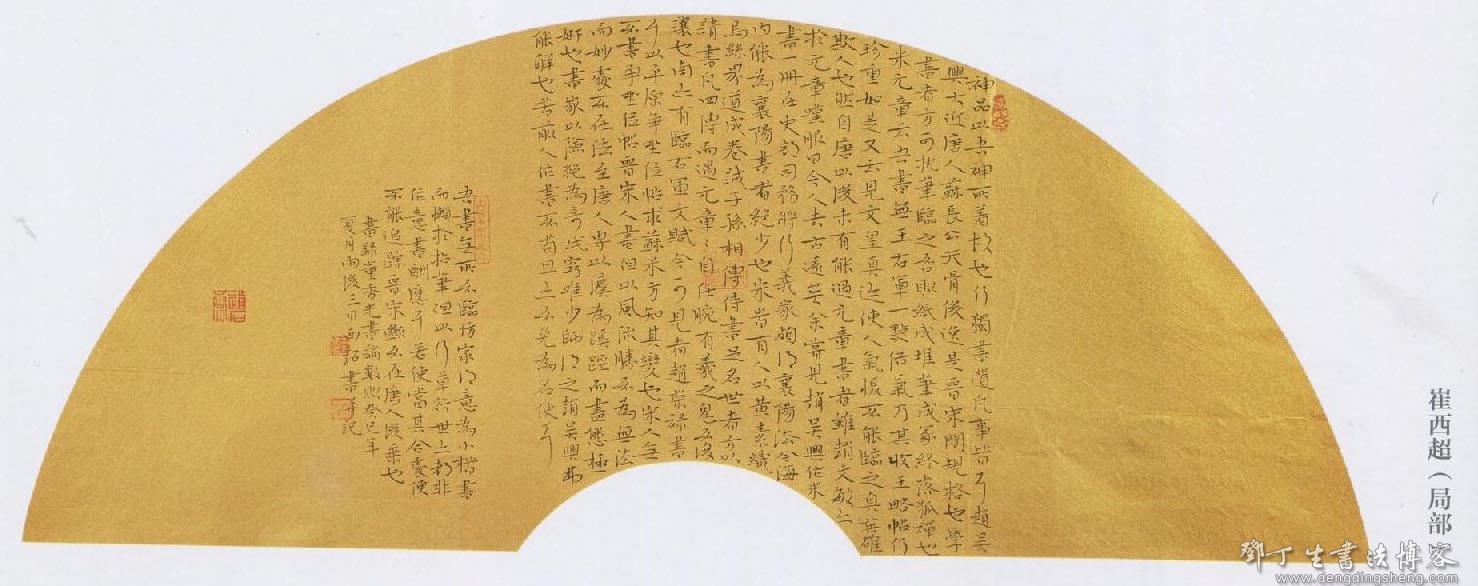 神品以吾神所着故也何獨書道凡事皆爾趙吳
興大近唐人蘇長公天骨俊逸是晉宋間規格也學
書者方可執筆臨之否則紙成堆筆成冢終落狐禪也
米元章云吾書無王右軍一點俗氣乃其收王略帖何
珍重如是又云見文皇真迹使人氣懾不能臨之真英雄
欺人也然自唐以後未有能過元章書者雖趙文敏亦
於元章嘆服曰今人去古遠矣余嘗見趙吳興作米
書一冊在史 司務 家頗得襄陽法今海
內能為襄陽書者絕少也米嘗有人以黃素織
烏絲界道成卷誡子孫相傳待書足名世者方以
請書凡四傳而遇元章〻自任腕有羲之鬼不復
讓也 有臨右軍文賦今可見者趙榮祿書
耳以平原爭坐位帖求蘇米方知其變也宋人無
不書爭坐位帖晉宋人書但以風流勝不為無法
而妙處不在法至唐人專以 為蹊徑而盡態極
妍也書家以險絕為奇此竅唯少師得之趙吳興弗
能解也若前人作書不苟且亦不免為名使耳
吾書無所不臨仿家得意為小楷書
而懶於拈筆但以行草行世亦都非
作意書酬應耳若使當其合處便
不能追踪晉宋斷不在唐人後乘也
書錄董香光書論數則癸巳年
夏月雨後三日西超書并記
崔西超（局部）
鄧丁生書法博客
www.dengdingsheng.com